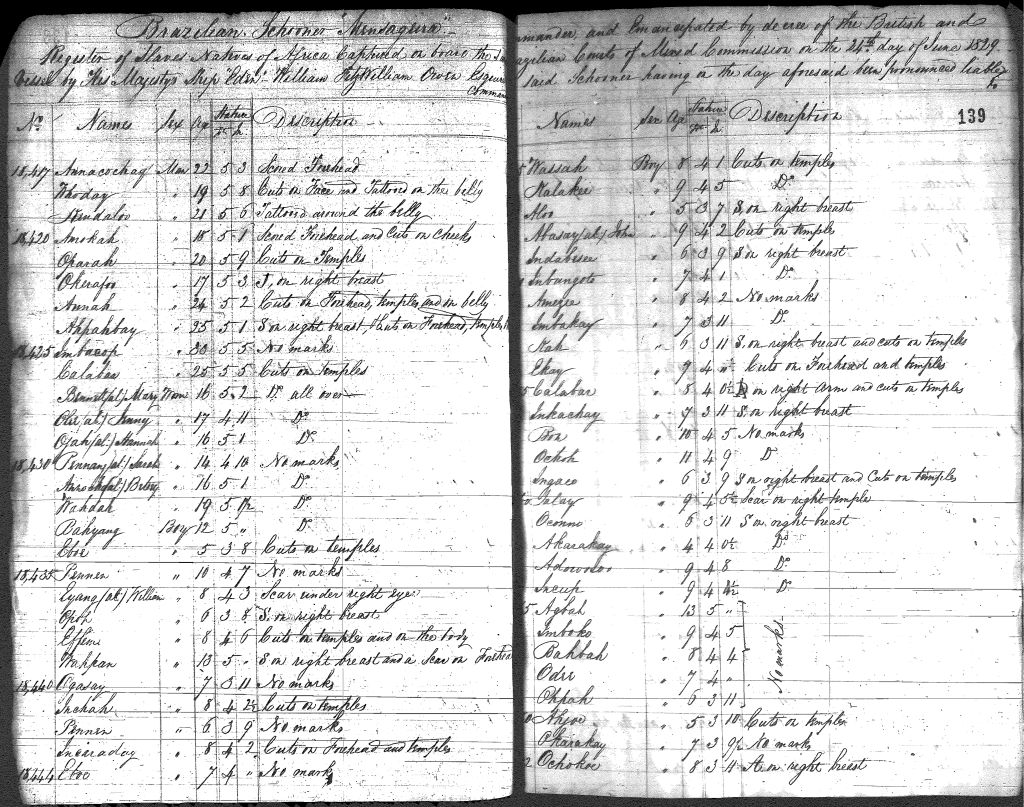 Brazilian Schooner "Mendagura"
Register of Slaves Natives of Africa Captured on board the said
Vessel by His Majestys Ship Eden William FitzWilliam Owen Esquire
Comman
No. Names Sex Age Stature Description
Ft. In.
18,417 Annacochay Man 22 5 3 Scored Forehead
Whoday " 19 5 8 Cuts on Face and Tattooed on the belly
Nendaloo " 21 5 6 Tattooed around the belly
18,420 Amokah " 18 5 1 Scored Forehead and Cuts on Cheeks
Oparah " 20 5 9 Cuts on Temples
Okerafoo " 17 5 3 S, on right breast
Annah " 24 5 2 Cuts on Forehead, temples and on belly
Appahbay " 25 5 1 S on right breast Cuts on Forehead, temples
18,425 Imbacop " 30 5 5 No marks
Calabar " 25 5 5 Cuts on temples
Bennett (al.) Mary Wom 16 5 2 Do all over
(al.) Jenny " 17 4 11 Do
Ojah (al.) Hannah " 16 5 1 Do
18,430 Pennay (al.) Sarah " 14 4 10 No marks
(al.) Betsey " 16 5 1 Do
Wahdah " 19 5 1½ Do
Bahyang Boy 12 5 " Do
Eboe " 5 3 8 Cuts on temples
18,435 Pennen " 10 4 7 No marks
Eyang (al.) William " 8 4 3 Scar under right eye
Opoh " 6 3 8 S. on right breast
Effem " 8 4 6 Cuts on temples and on the body
Wahpan " 13 5 " S. on right breast and a scar on Forehead
18,440 Ogasay " 7 3 11 No marks
Inchah " 8 4 2½ Cuts on temples
Pennen " 6 3 9 No marks
Inearaday " 8 4 2 Cuts on Forehead and temples
18,444 Eboe " 7 4 " No marks
mmander and Emancipated by decree of the British and
azilian Courts of Mixed Commission on the 24th day of June 1829
said Schooner having on the day aforesaid been pronounced liable
to
139
Names Sex Age Stature Description
Ft. In.
Wassah Boy 8 4 1 Cuts on temples
Nalakee " 9 4 5 Do
Aloo " 5 3 7 S, on right breast
Abasay (al.) John " 9 4 2 Cuts on temples
Indabesen " 6 3 9 S on right breast
Inbangoto " 7 4 1 Do
Amezee " 8 4 2 No marks
Imbakay " 7 3 11 Do
Nah " 6 3 11 S. on right breast and cuts on temples
Ekay " 9 4 " Cuts on Forehead and temples
5 Calabar " 8 4 0½ on right Arm and cuts on temples
Inkachay " 7 3 11 S. on right breast
Bon " 10 4 5 No marks
Ochoh " 11 4 9 D
Ingaco " 6 3 9 S on right breast and Cuts on temples
Jalay " 9 4 5½ Scar on right temple
Oconno " 6 3 11 S on right breast
Akarakay " 4 4 0½ Do
" 9 4 8 Do
Ineup " 9 4 4½ Do
5 Agbah " 13 5 "
Imboko " 9 4 5
Bahbah " 8 4 4 No marks
Odri " 7 4 "
Ohpah " 6 3 11
Ahjoe " 5 3 10 Cuts on temples
Okarakay " 7 3 9½ No marks
2 Ochokoe " 8 3 4 A on right breast